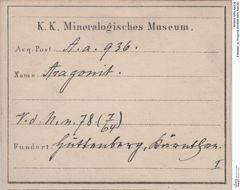 K. K. Mineralogisches Museum.
Acq. Post A.a. 936.
Name Aragonit.
V.d. N.n. 78 (7/64)
Fundort Hüttenberg, Kärnthen.
I